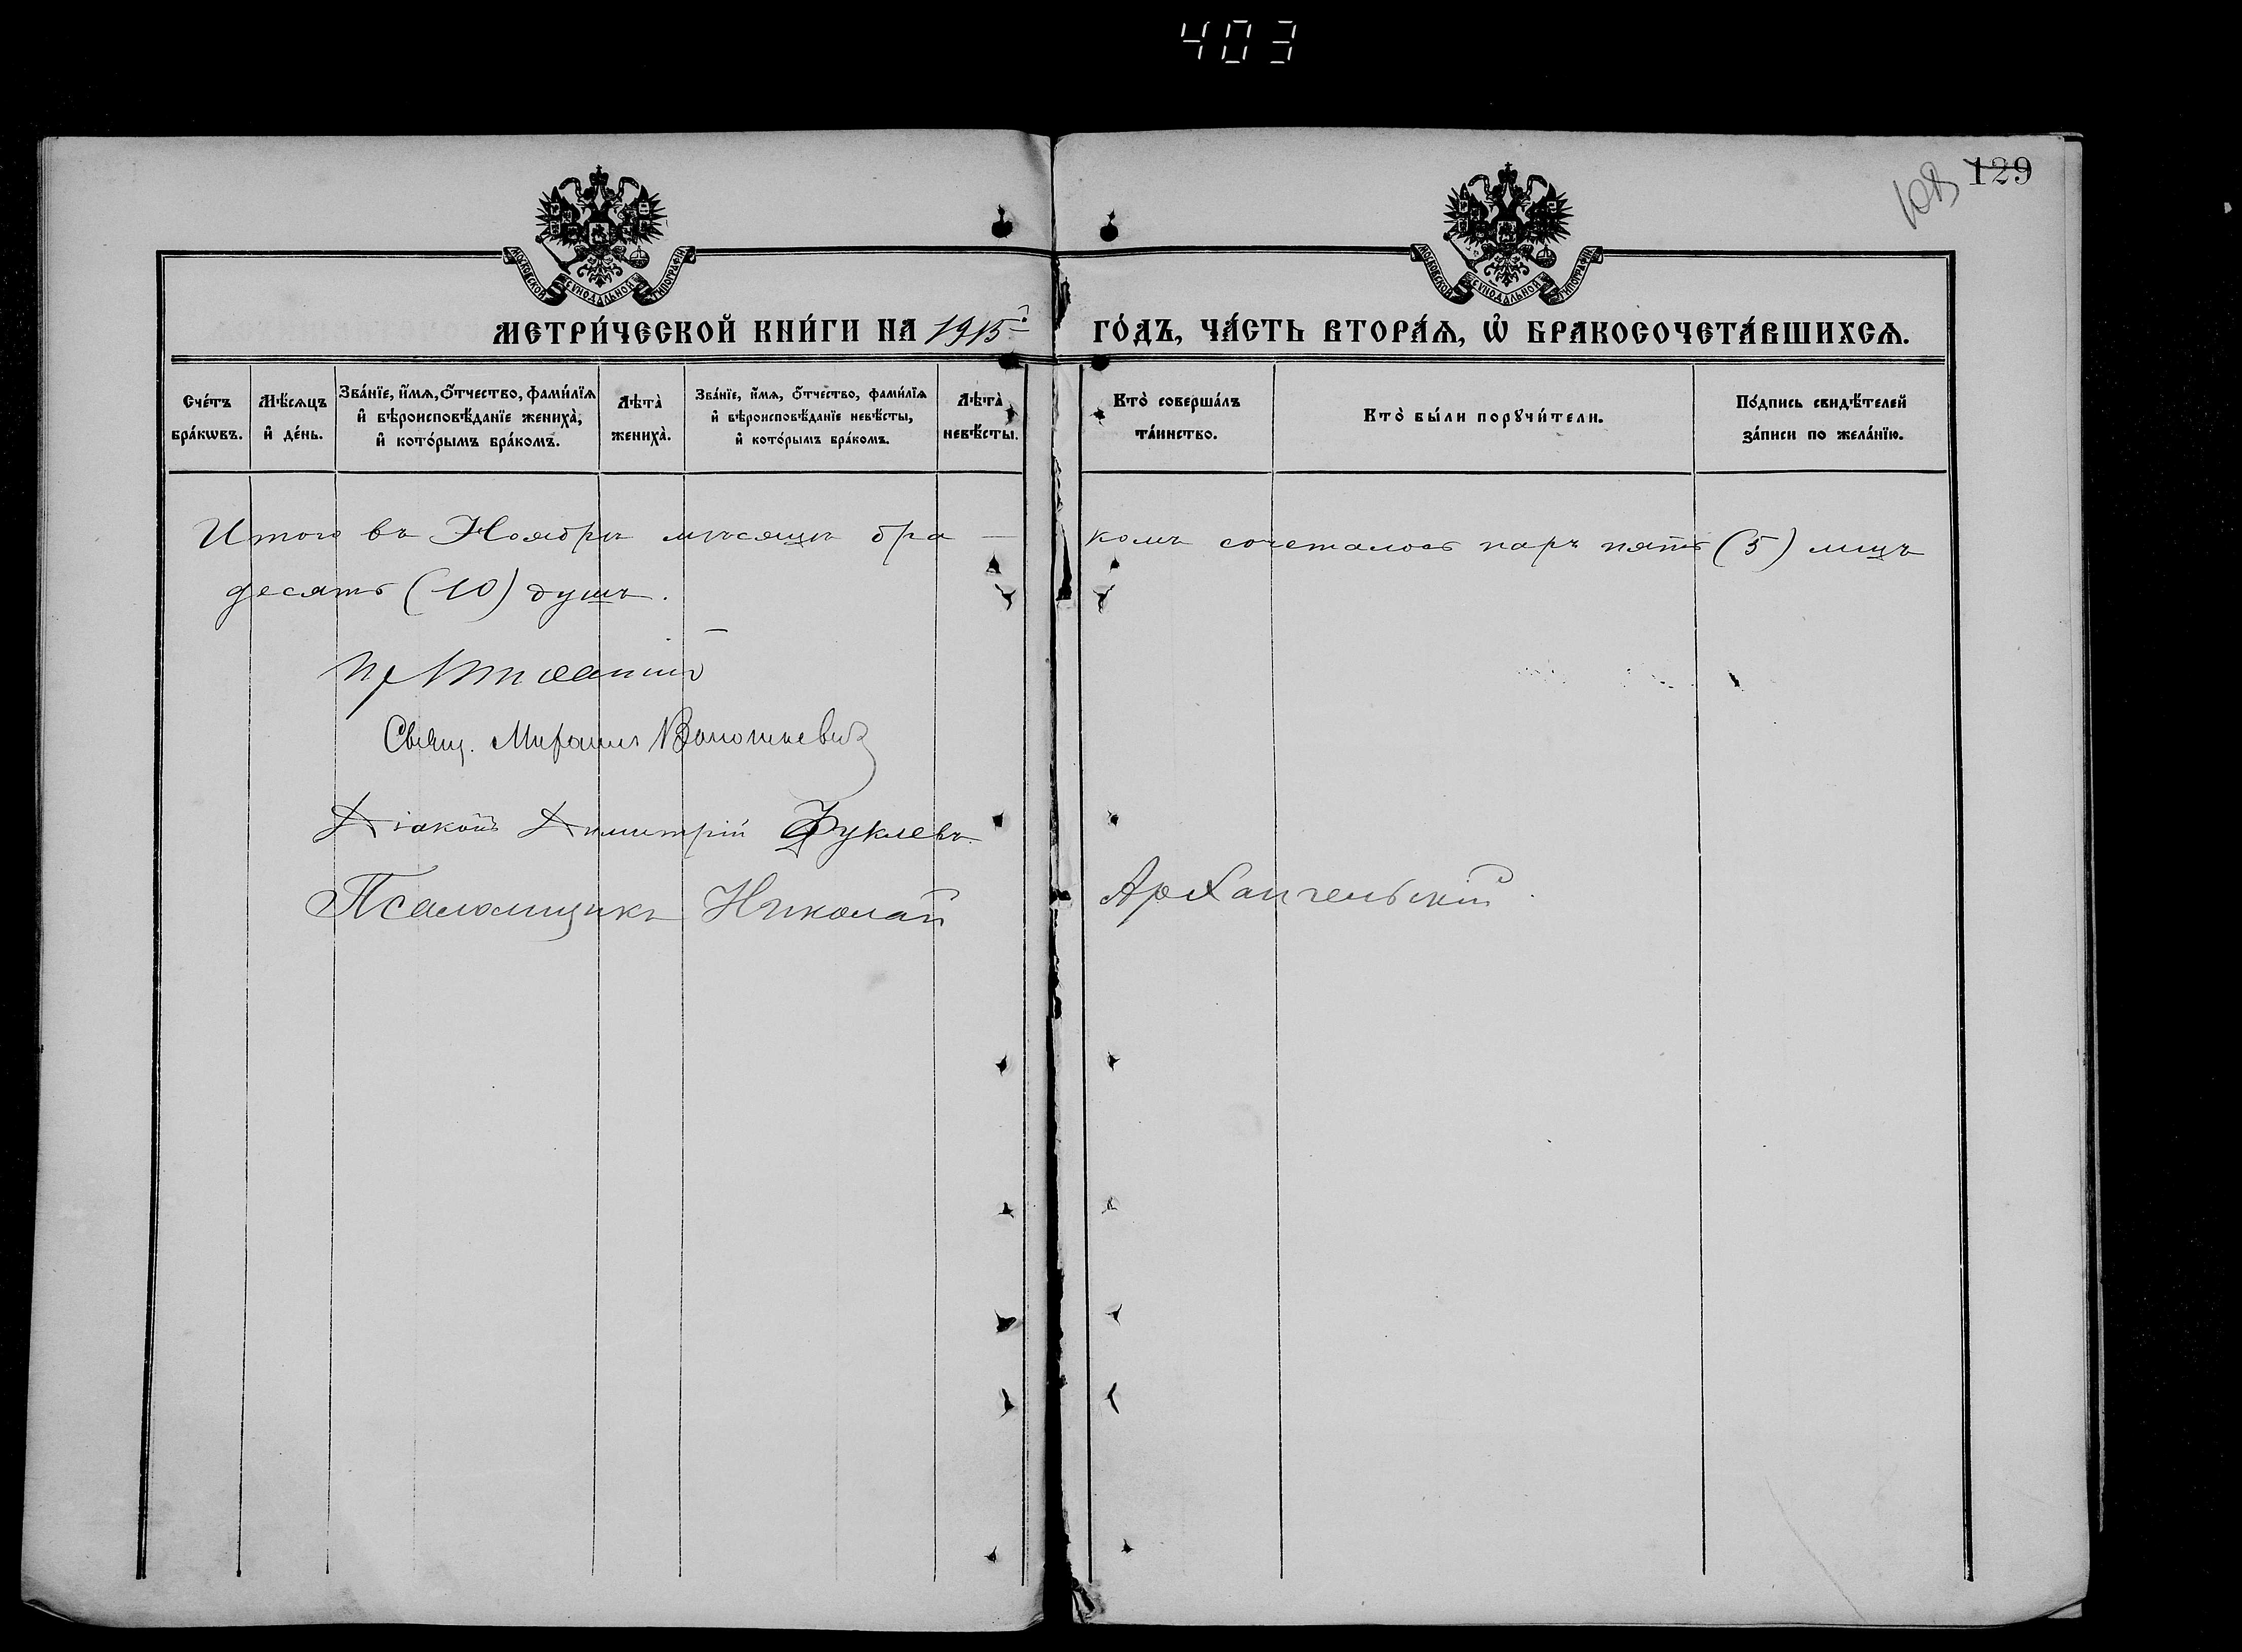 403
129
108
МОСКОВСКОЙ СѴНОДАЛЬНОЙ ТИПОГРАФІИ
МОСКОВСКОЙ СѴНОДАЛЬНОЙ ТИПОГРАФІИ
МЕТРИ́ЧЕСКОЙ КНИ́ГИ НА 1915й ГО́ДЪ, ЧА́СТЬ ВТОРА́Ѧ, Ѽ БРАКОСОЧЕТА́ВШИХСѦ.
Сче́тъ бра́кωвъ.
Мѣ́сѧцъ и҆ де́нь.
Зва́нїе, и҆́мѧ, ѻ҆́тчество, фами́лїѧ и҆ вѣроисповѣ́данїе жениха̀, и҆ кото́рымъ бра́комъ.
Лѣта̀ жениха̀.
Зва́нїе, и҆́мѧ, ѻ҆́тчество, фами́лїѧ и҆ вѣроисповѣ́данїе невѣ́сты, и҆ кото́рымъ бра́комъ.
Лѣта̀ невѣ́сты.
Кто̀ соверша́лъ та́инство.
Кто̀ бы́ли порꙋчи́тели.
По́дпись свидѣ́телей за́писи по жела́нїю.
Итого въ Ноябрѣ мѣсяцѣ бра — комъ сочеталось паръ пять (5) лицъ
десять (10) душъ.
Свящ. Михаилъ
Діаконъ Димитрій Фуклевъ.
Псаломщикъ Николай Архангельскій.